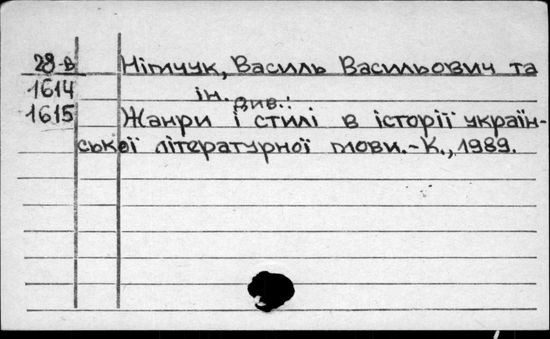 28-в Німчук, Василь Васильович та
1614 ін.
див.:
1615 Жанри і стилі в історії україн-
ської літературної мови.-К., 1989.